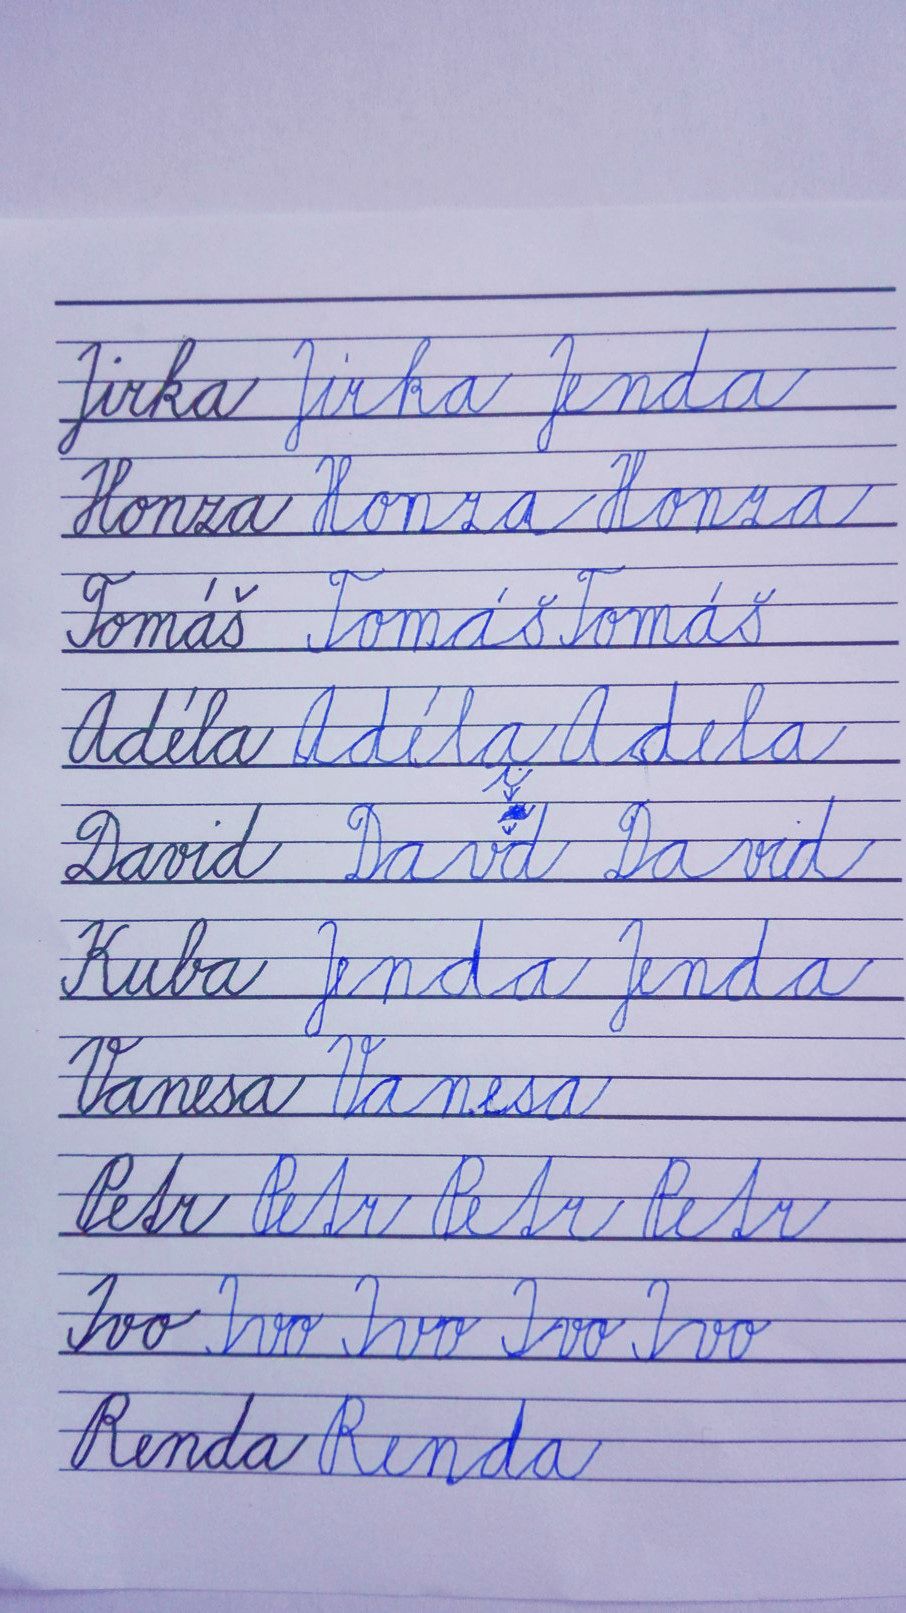 Jirka Jirka Jenda
Honza Honza Honza
Tomáš Tomáš Tomáš
Adéla Adéla Adela
i
David Davd David
Kuba Jenda Jenda
Vanesa Vanesa
Petr Petr Petr Petr
Ivo Ivo Ivo Ivo Ivo
Renda Renda